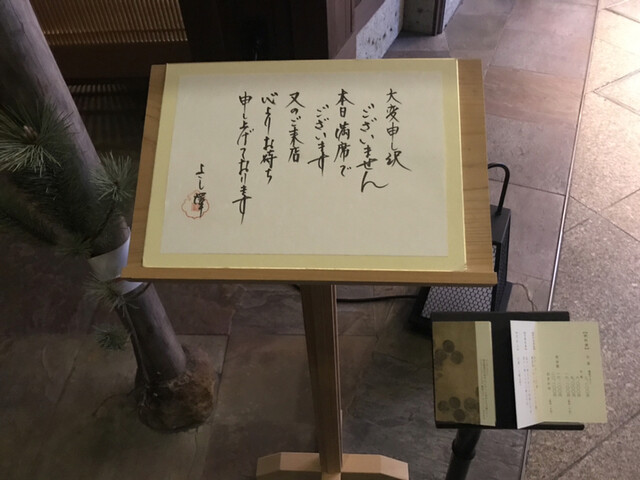 大変申し訳
ございません
本日満席で
ございます
又のご来店
心よりお待ち
申し上げております
よし輝